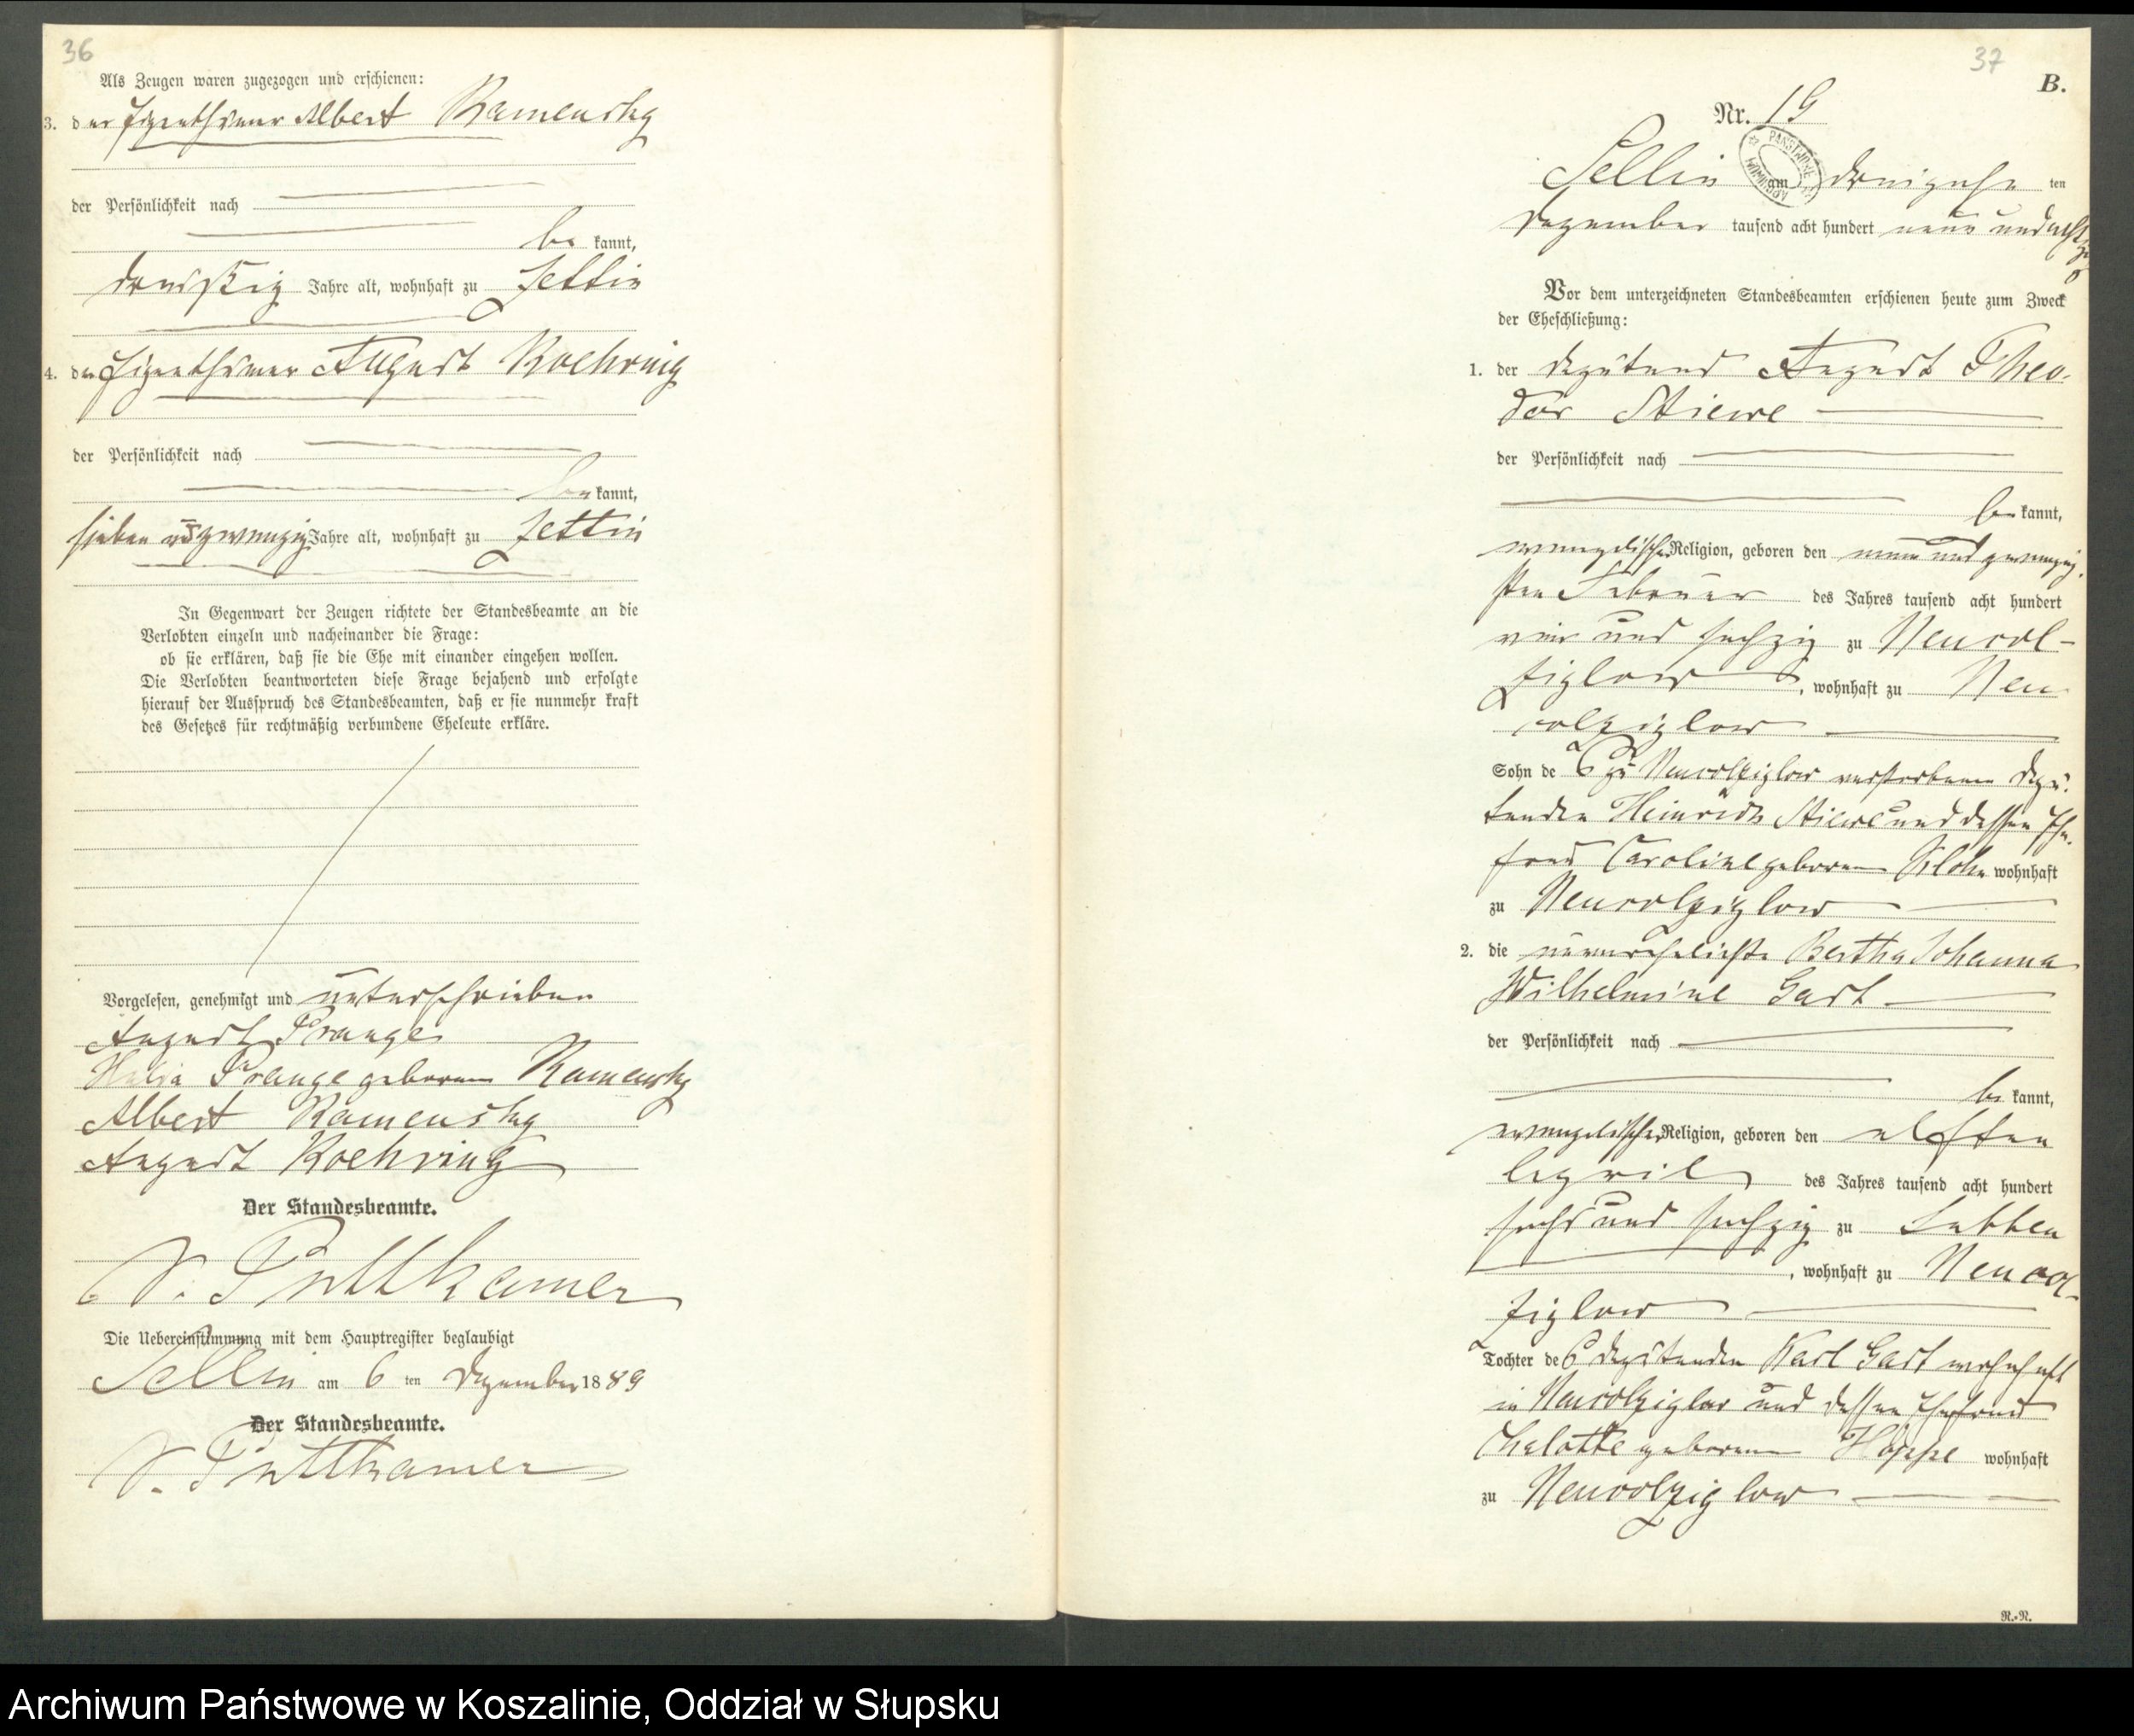 36
Als Zeugen waren zugezogen und erschienen:
3. der Eigenthümer Albert Kamensky
der Persönlichkeit nach
be kannt,
dreißig Jahre alt, wohnhaft zu Zettin
4. der Eigenthümer August Koehring
der Persönlichkeit nach
be kannt,
sieben u zwanzig Jahre alt, wohnhaft zu Zettin
In Gegenwart der Zeugen richtete der Standesbeamte an die
Verlobten einzeln und nacheinander die Frage:
ob sie erklären, daß sie die Ehe mit einander eingehen wollen.
Die Verlobten beantworteten diese Frage bejahend und erfolgte
hierauf der Ausspruch des Standesbeamten, daß er sie nunmehr kraft
des Gesetzes für rechtmäßig verbundene Eheleute erkläre.
Vorgelesen, genehmigt und unterschrieben
August Prange
Prange geborene Kamensky
Albert Kamensky
August Koehring
Der Standesbeamte.
v. Puttkamer
Die Uebereinstimmung mit dem Hauptregister beglaubigt
Sellin am 6 ten Dezember 1889
Der Standesbeamte.
v. Puttkamer
37
B.
Nr. 19
Sellin am dreizehn ten
Dezember tausend acht hundert neun und achtzig
Vor dem unterzeichneten Standesbeamten erschienen heute zum Zweck
der Eheschließung:
1. der Deputand August Theo-
dor Stiewe
der Persönlichkeit nach
be kannt,
evangelischer Religion, geboren den neun und zwanzig-
sten Februar des Jahres tausend acht hundert
vier und sechzig zu Neucol-
ziglow, wohnhaft zu Neu
colziglow
Sohn des zu Neucolziglow verstorbenen Depu-
tanden Heinrich Stiewe und dessen Ehe-
frau Caroline geborenen wohnhaft
zu Neucolziglow
2. die unverehelichte Bertha Johanna
Wilhelmine Gast
der Persönlichkeit nach
be kannt,
evangelischer Religion, geboren den elften
April des Jahres tausend acht hundert
sechs und sechzig zu Lubben
, wohnhaft zu Neucol-
ziglow
Tochter des Deputanden Karl Gast wohnhaft
in Neucolziglow und dessen Ehefrau
Chalotte geborenen Hoppe wohnhaft
zu Neucolziglow
R.-R.
Archiwum Państwowe w Koszalinie, Oddział w Słupsku